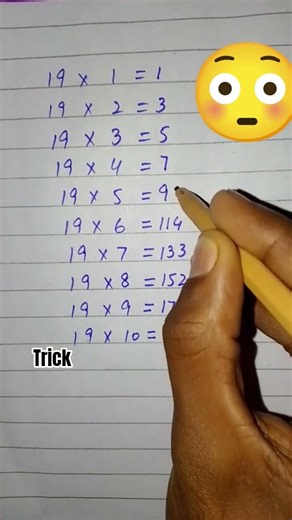 19 × 1 = 1
19 × 2 = 3
19 × 3 = 5
19 × 4 = 7
19 × 5 = 9
19 × 6 = 114
19 × 7 = 133
19 × 8 = 152
19 × 9 = 17
19 × 10 =
Trick